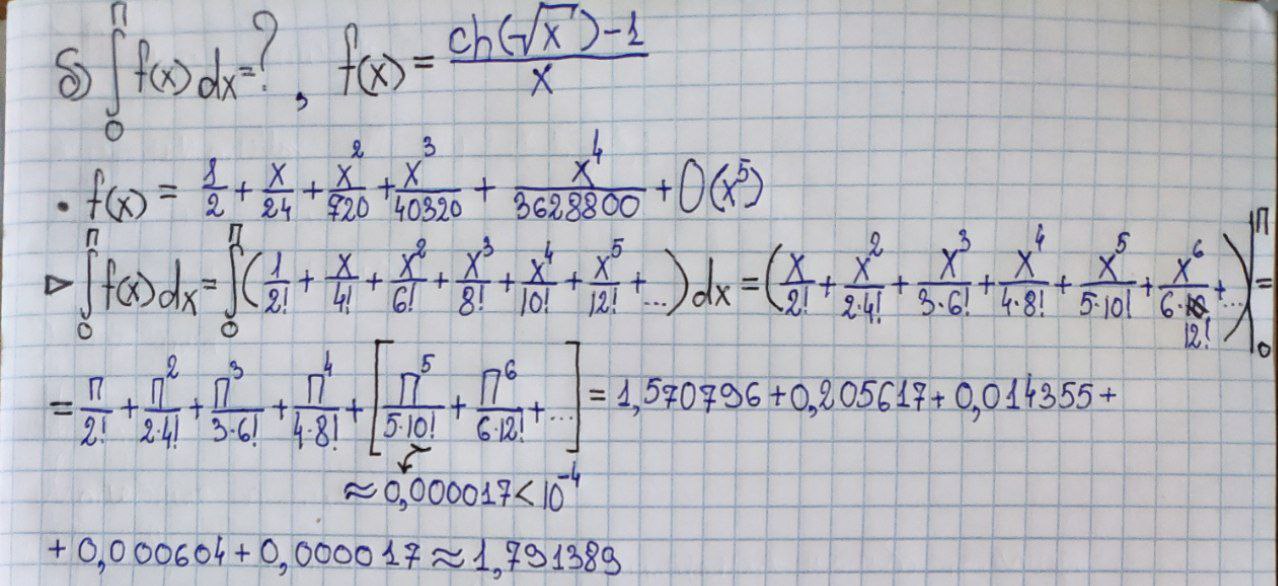 б) ∫₀^π f(x) dx = ?, f(x) = (ch(√x) - 1)/x
• f(x) = 1/2 + x/24 + x²/720 + x³/40320 + x⁴/3628800 + O(x⁵)
▷ ∫₀^π f(x) dx = ∫₀^π (1/2! + x/4! + x²/6! + x³/8! + x⁴/10! + x⁵/12! + ...) dx = (x/2! + x²/(2·4!) + x³/(3·6!) + x⁴/(4·8!) + x⁵/(5·10!) + x⁶/(6·12!) + ...)|₀^π =
= π/2! + π²/(2·4!) + π³/(3·6!) + π⁴/(4·8!) + [π⁵/(5·10!) + π⁶/(6·12!) + ...] = 1,570796 + 0,205617 + 0,014355 +
≈ 0,000017 < 10⁻⁴
+ 0,000604 + 0,000017 ≈ 1,791389